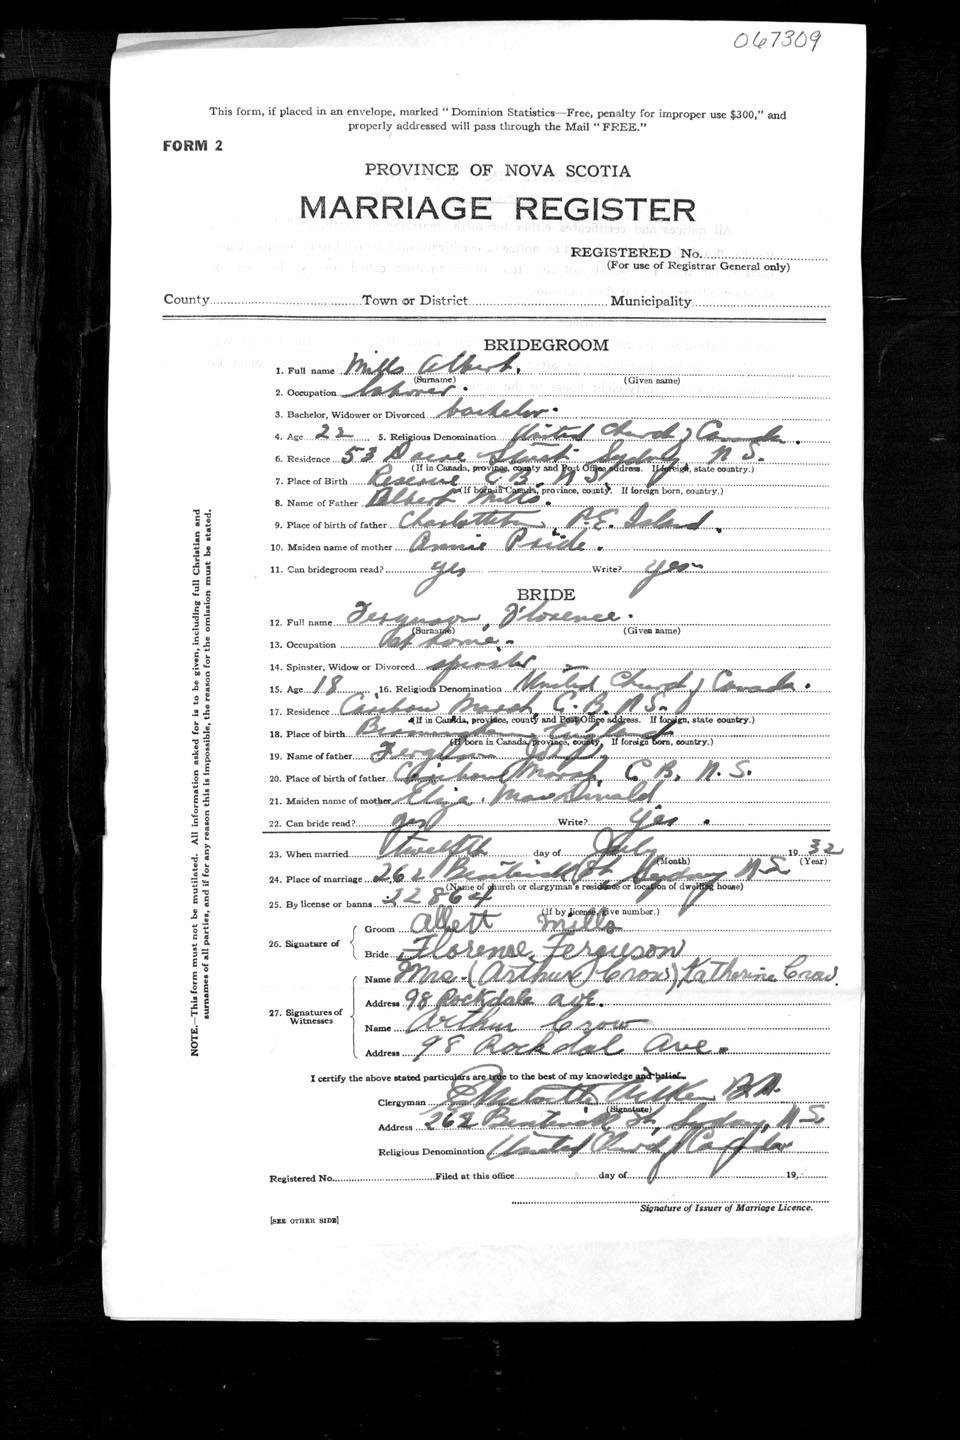 067309
This form, if placed in an envelope, marked "Dominion Statistics—Free, penalty for improper use $300," and
properly addressed will pass through the Mail "FREE."
FORM 2
PROVINCE OF NOVA SCOTIA
MARRIAGE REGISTER
REGISTERED No.
(For use of Registrar General only)
County Town or District Municipality
BRIDEGROOM
1. Full name Mills Albert.
(Surname) (Given name)
2. Occupation Laborer.
3. Bachelor, Widower or Divorced bachelor.
4. Age 22 5. Religious Denomination United Church of Canada.
6. Residence 53 Street Sydney N.S.
(If in Canada, province, county and Post Office address. If foreign, state country.)
7. Place of Birth Reserve C.B. N.S.
(If born in Canada, province, county. If foreign born, country.)
8. Name of Father Albert Mills.
9. Place of birth of father Charlottetown, P.E. Island.
10. Maiden name of mother Annie Pride.
11. Can bridegroom read? yes Write? yes
BRIDE
12. Full name Ferguson, Florence.
(Surname) (Given name)
13. Occupation at home.
14. Spinster, Widow or Divorced spinster
15. Age 18 16. Religious Denomination United Church of Canada.
17. Residence Caribou Marsh, C.B. N.S.
(If in Canada, province, county and Post Office address. If foreign, state country.)
18. Place of birth Birmingham England
(If born in Canada, province, county. If foreign born, country.)
19. Name of father Ferguson John
20. Place of birth of father Caribou Marsh, C.B. N.S.
21. Maiden name of mother Eliza MacDonald
22. Can bride read? yes Write? yes.
23. When married twelfth day of July 1932
(Month) (Year)
24. Place of marriage 262 Bentinck St. Sydney N.S.
(Name of church or clergyman's residence or location of dwelling house)
25. By license or banns 22864
(If by license, give number.)
26. Signature of
Groom Albert Mills
Bride Florence Ferguson
27. Signatures of Witnesses
Name Mrs. (Arthur Crow) Katherine Crow.
Address 98 Rockdale ave.
Name Arthur Crow
Address 98 Rockdal Ave.
I certify the above stated particulars are true to the best of my knowledge and belief.
Clergyman Aitken B.A.
(Signature)
Address 262 Bentinck St, Sydney, N.S.
Religious Denomination United Church of Canada
Registered No. Filed at this office day of 19
Signature of Issuer of Marriage Licence.
[SEE OTHER SIDE]
NOTE.—This form must not be mutilated. All information asked for is to be given, including full Christian and
surnames of all parties, and if for any reason this is impossible, the reason for the omission must be stated.